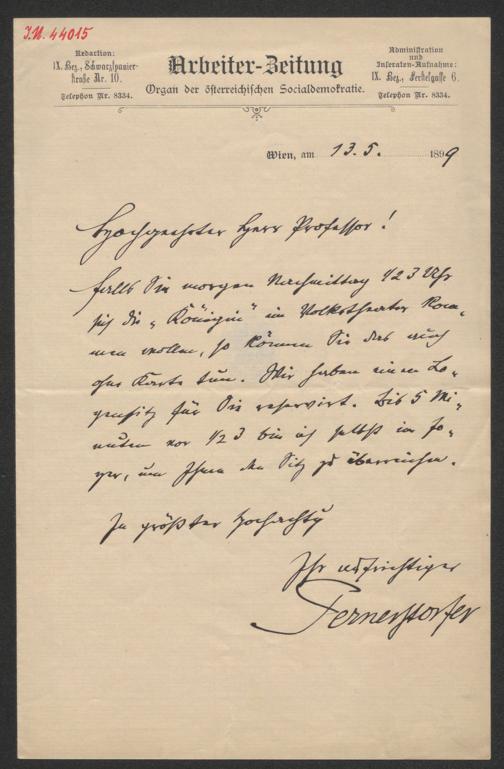 I.N. 44015
Redaction:
IX. Bez., Schwarzspanier-
straße Nr. 10.
Telephon Nr. 8334.
Arbeiter-Zeitung
Organ der österreichischen Socialdemokratie.
Administration
und
Inseraten-Aufnahme:
IX. Bez., Ferstelgasse 6.
Telephon Nr. 8334.
Wien, am 13. 5. 1899
Hochgeehrter Herr Professor!
falls Sie morgen Nachmittag 1/2 3 Uhr
sich die „Königin" im Volkstheater kom-
men wollen, so können Sie das auch
ohne Karte tun. Wir haben einen Lo-
gensitz für Sie reservirt. Bis 5 Mi-
nuten vor 1/2 3 bin ich selbst im Fo-
yer, um Ihnen den Sitz zu überreichen.
In größter Hochachtg
Ihr aufrichtiger
Pernerstorfer